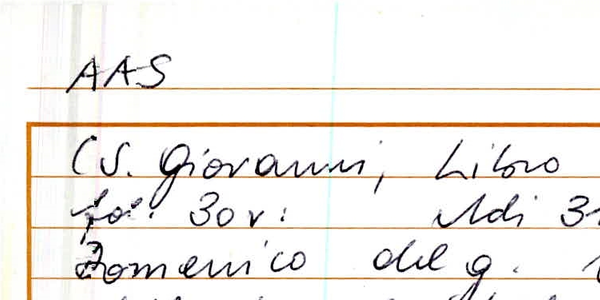 AAS
(S. Giovanni, Libro
fo: 30v: Adi 31
Domenico del q.